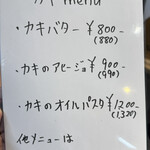 menu
・カキバター ¥800-
(880)
・カキのアヒージョ ¥900-
(990)
・カキのオイルパスタ ¥1200-
(1,320)
他メニューは